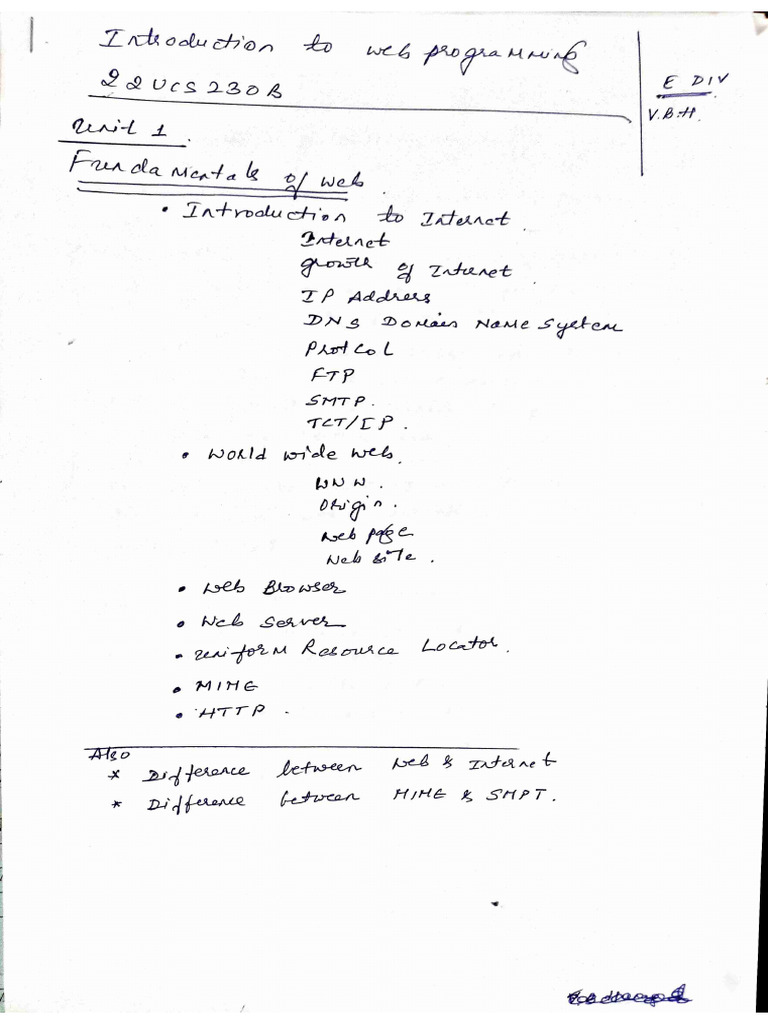 Introduction to web programming
22UCS230B
E DIV
V.B.H.
Unit 1.
Fundamentals of web.
• Introduction to Internet.
Internet
growth of Internet.
IP Address
DNS Domain Name System
Protcol
FTP
SMTP.
TCT/IP.
• World wide web.
WWW.
Origin.
Web page
Web site.
• Web Browser
• Web Server
• Uniform Resource Locator.
• MIME
• HTTP.
Also
* Difference between Web & Internet
* Difference between MIME & SMPT.